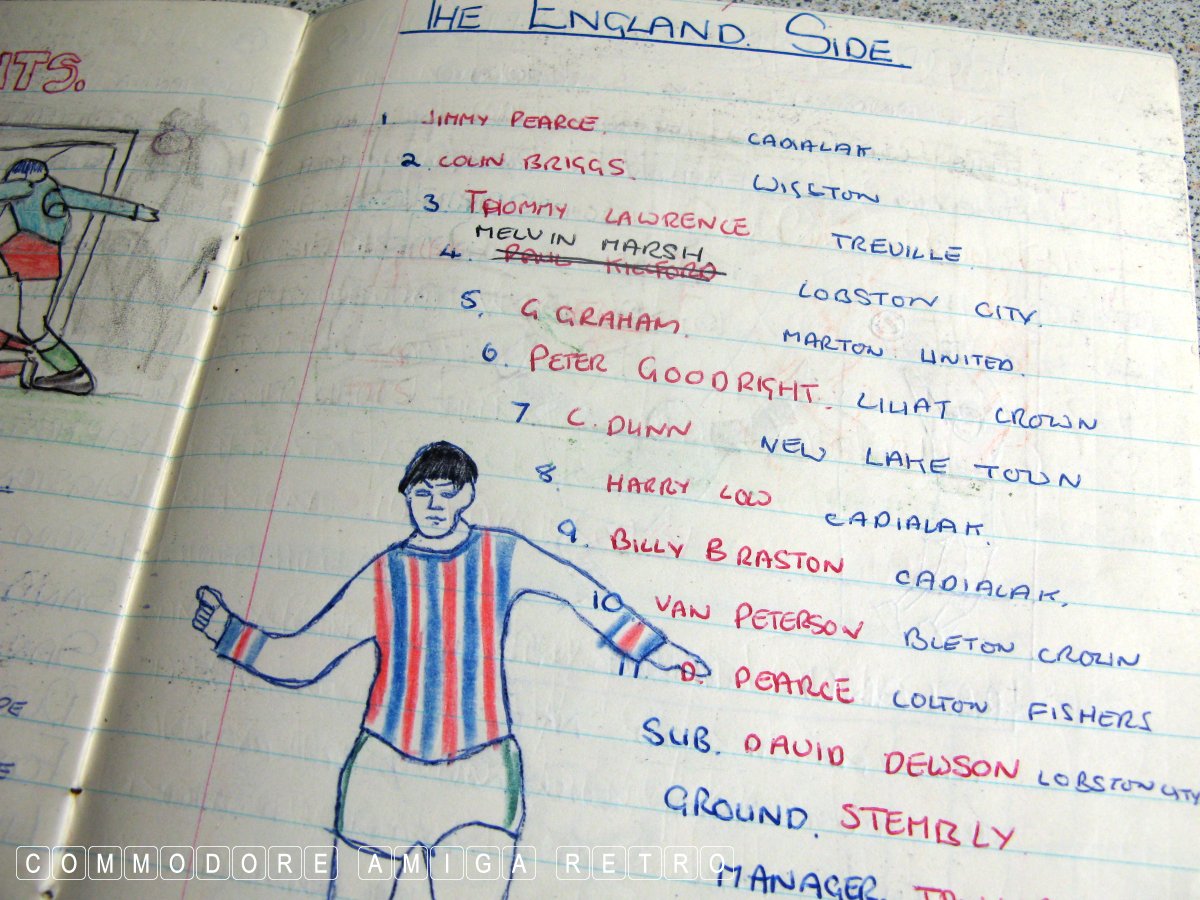 THE ENGLAND SIDE.
ITS.
1 JIMMY PEARCE. CADIALAK.
2. COLIN BRIGGS. WISSTON
3 THOMMY LAWRENCE TREVILLE.
MELVIN MARSH
4. PAUL KILFORD LOBSTON CITY.
5. G GRAHAM. MARTON UNITED.
6. PETER GOODRIGHT. LILIAT CROWN
7 C. DUNN NEW LAKE TOWN
8. HARRY LOW CADIALAK.
9. BILLY BRASTON CADIALAK.
10 VAN PETERSON BLETON CROWN
11. D. PEARCE COLTON FISHERS
SUB. DAVID DEWSON LOBSTON CITY
GROUND. STEMBLY
MANAGER.
COMMODORE AMIGA RETRO